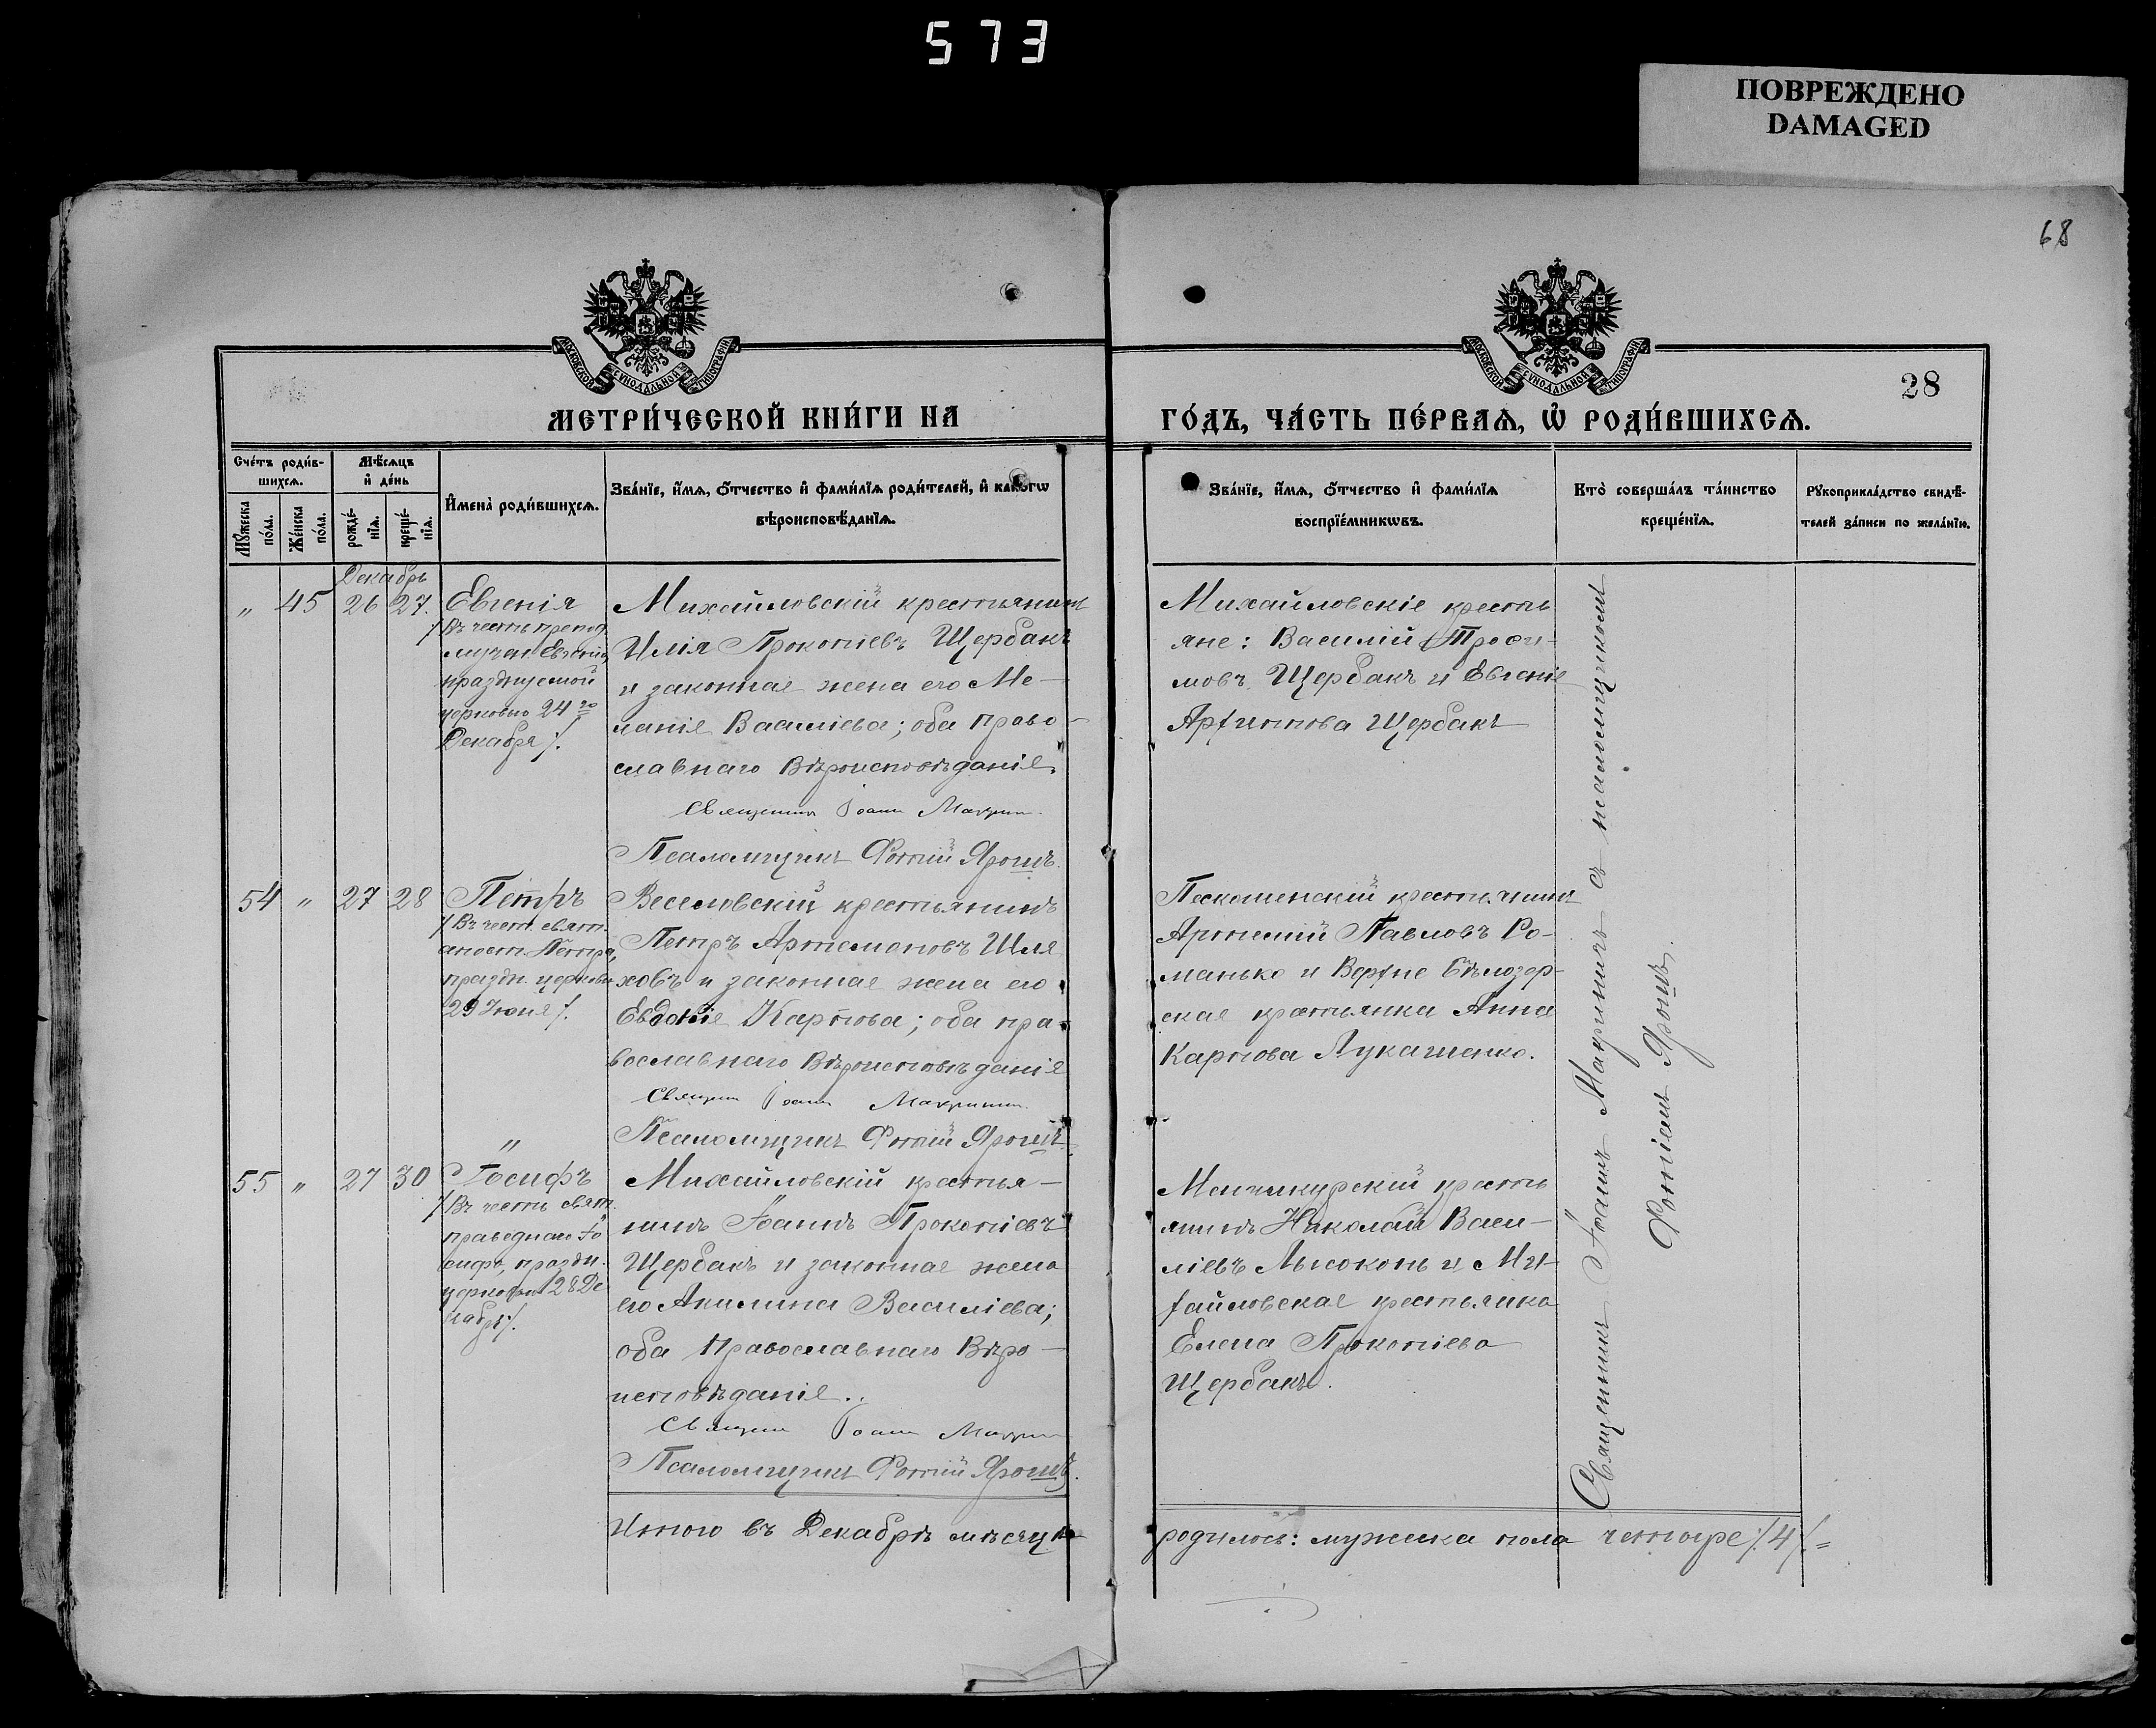 573
ПОВРЕЖДЕНО
DAMAGED
68
МОСКОВСКОЙ СѴНОДАЛЬНОЙ ТИПОГРАФІИ
МОСКОВСКОЙ СѴНОДАЛЬНОЙ ТИПОГРАФІИ
28
МЕТРИ́ЧЕСКОЙ КНИ́ГИ НА
ГО́ДЪ, ЧА́СТЬ ПЕ́РВАѦ, Ѡ҆ РОДИ́ВШИХСѦ.
Сче́тъ роди́в-
шихсѧ.
Мꙋ́жеска по́ла.
Же́нска по́ла.
Мѣ́сѧцъ
и҆ де́нь
рожде́-
нїѧ.
креще́-
нїѧ.
И҆мена̀ роди́вшихсѧ.
Зва́нїе, и҆́мѧ, ѻ҆́тчество и҆ фами́лїѧ роди́телей, и҆ како́гѡ
вѣроисповѣ́данїѧ.
Зва́нїе, и҆́мѧ, ѻ҆́тчество и҆ фами́лїѧ
воспрїе́мникѡвъ.
Кто̀ соверша́лъ та́инство
креще́нїѧ.
Рꙋкоприкла́дство свидѣ́-
телей за́писи по жела́нїю.
Декабрь
„ 45 26 27.
Евгенія
/Въ честь препод.
мучен. Евгеніи,
празднуемой
церковью 24го
Декабря/.
Михайловскій крестьянинъ
Илія Прокопіевъ Щербакъ
и законная жена его Ме-
ланія Василіева; оба право-
славнаго Вѣроисповѣданія.
Священникъ Іоаннъ Макринъ
Псаломщикъ Фотій Ярошъ.
Михайловскіе кресть
яне: Василій Трофи-
мовъ Щербакъ и Евгенія
Щербакъ
54 „ 27 28
Петръ
/Въ чест. свят.
апост. Петра,
праздн. церковью
29 Іюня/.
Веселовскій крестьянинъ
Петръ Артамоновъ Шля
ховъ и законная жена его
Евдокія Карпова; оба пра-
вославнаго Вѣроисповѣданія
Священ Іоаннъ Макринъ
Псаломщикъ Фотій Ярошъ.
Пескошенскій крестьянинъ
Артемій Павловъ Ро-
манько и Верхне Бѣлозер-
ская крестьянка Анна
Карпова Лукашенко.
55 „ 27 30
Іосифъ
/Въ честь свят.
праведнаго Іо
сифа, праздн.
церковью 28 Де
кабря/.
Михайловскій крестья-
нинъ Іоаннъ Прокопіевъ
Щербакъ и законная жена
его Акилина Василіева;
оба Православнаго Вѣро-
исповѣданія.
Священ Іоаннъ Макринъ
Псаломщикъ Фотій Ярошъ.
Менчикурскій кресть
янинъ Николай Васи-
ліевъ Лысоконь и Ми-
хайловская крестьянка
Елена Прокопіева
Щербакъ.
Священникъ Іоаннъ Макринъ съ псаломщикомъ
Фотіемъ Ярошъ.
Итого въ Декабрѣ мѣсяцѣ
родилось: мужеска пола четыре /4/ =